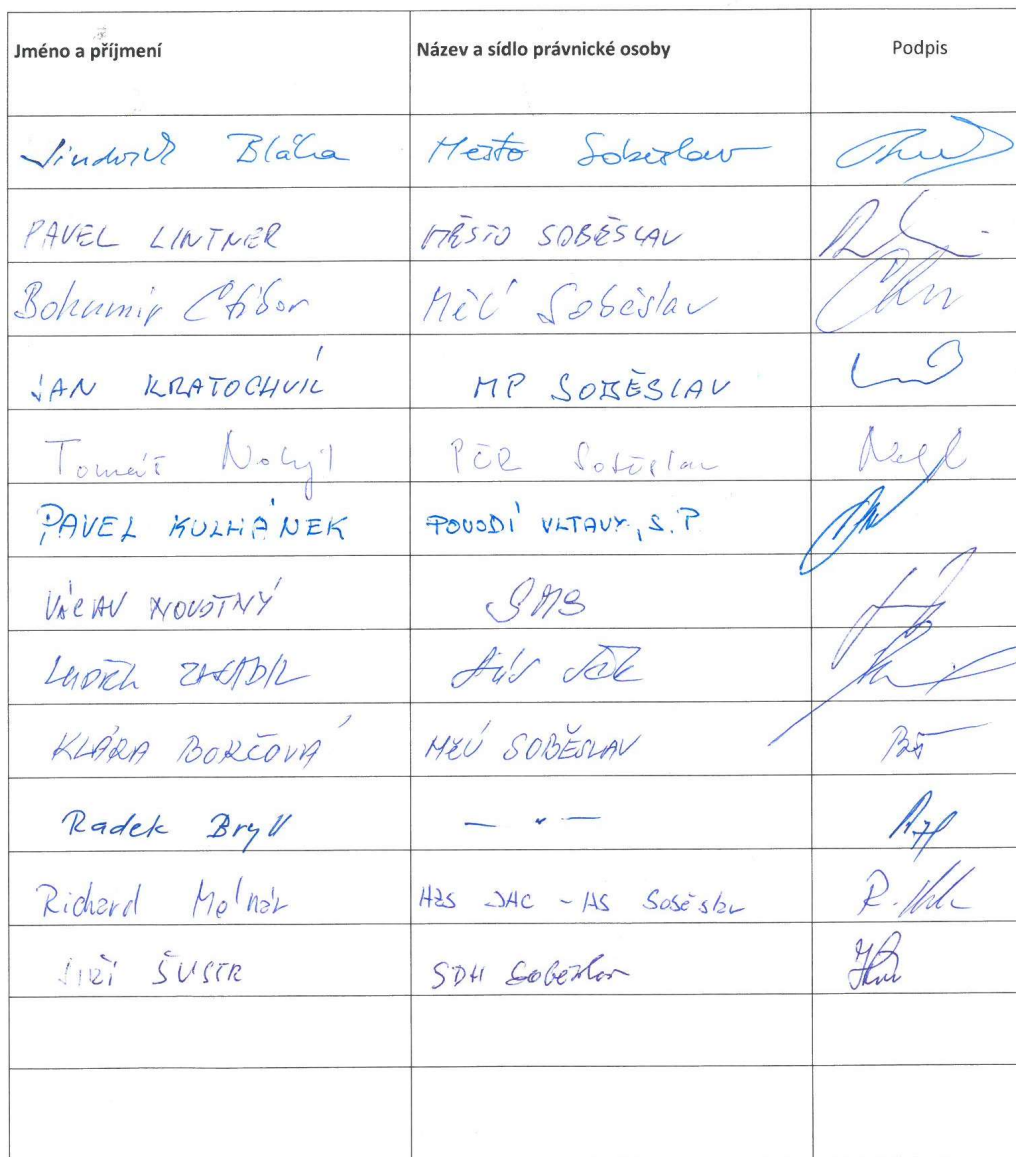 Jméno a příjmení Název a sídlo právnické osoby Podpis
Jindřich Bláha Město Soběslav
PAVEL LINTNER MĚSTO SOBĚSLAV
Bohumír Ctibor MěÚ Soběslav
JAN KRATOCHVÍL MP SOBĚSLAV
Tomáš Nohýl PČR Soběslav
PAVEL KULHÁNEK POVODÍ VLTAVY, S.P
VÁCLAV NOVOTNÝ SMS
KLÁRA BORČOVÁ MěÚ SOBĚSLAV
Radek Bryll — " —
Richard Molnár HZS JHC - HS Soběslav
JIŘÍ ŠUSTR SDH Soběslav